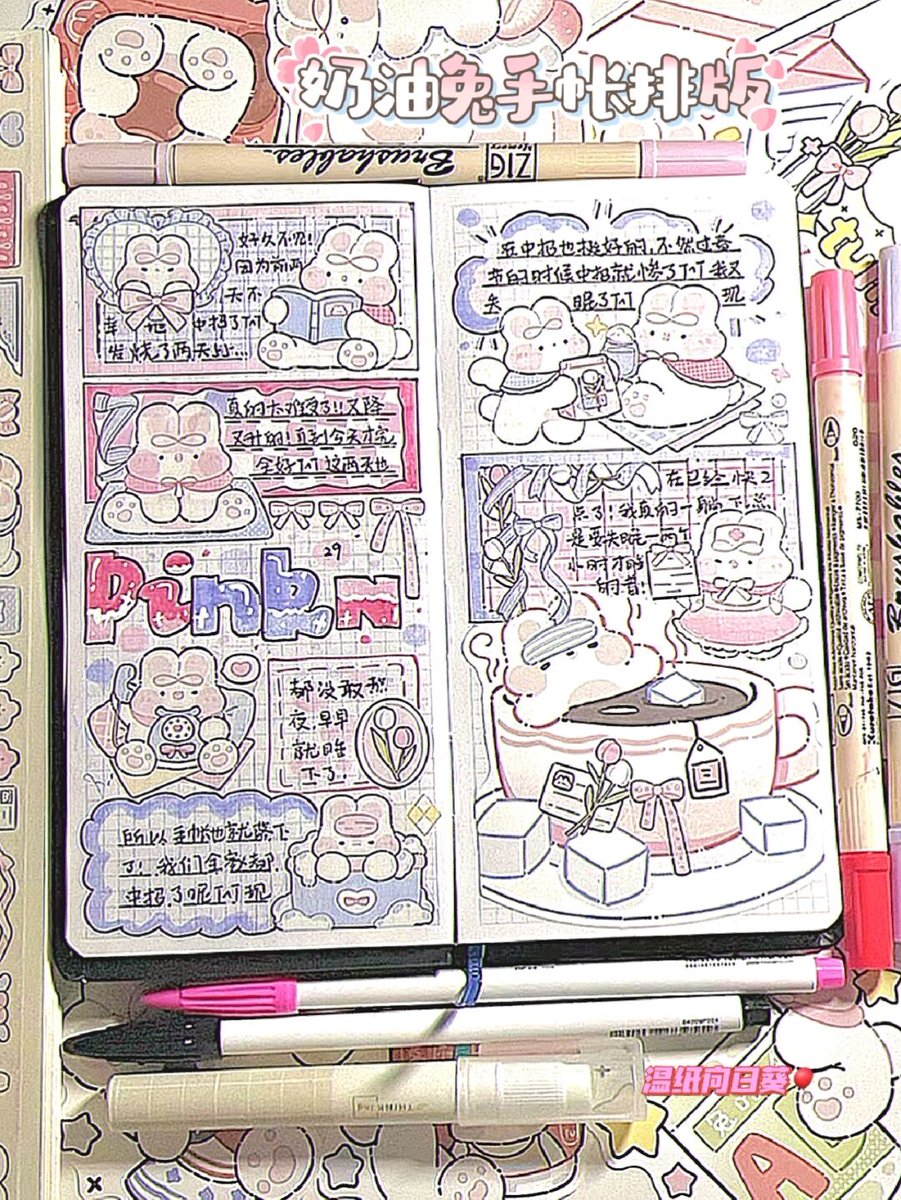 奶油兔手帐排版
ZIG
Brushables
好久不见!
因为前两
天不
幸
中招了TnT
发烧了两天
真的太难受了!!又降
又升的!直到今天才完
全好TnT 这两天也
29
Pink
都没敢熬
夜,早早
就睡
下了!
所以手帐也就落下
了!我们全家都
中招了呢TnT 现
在中招也挺好的,不然过
的时候中招就惨了TnT 我又
失
眠了TnT
现
在已经快2
点了!我真的一躺下总
是要失眠一两个
小时才
Brushables
温纸向日葵
A